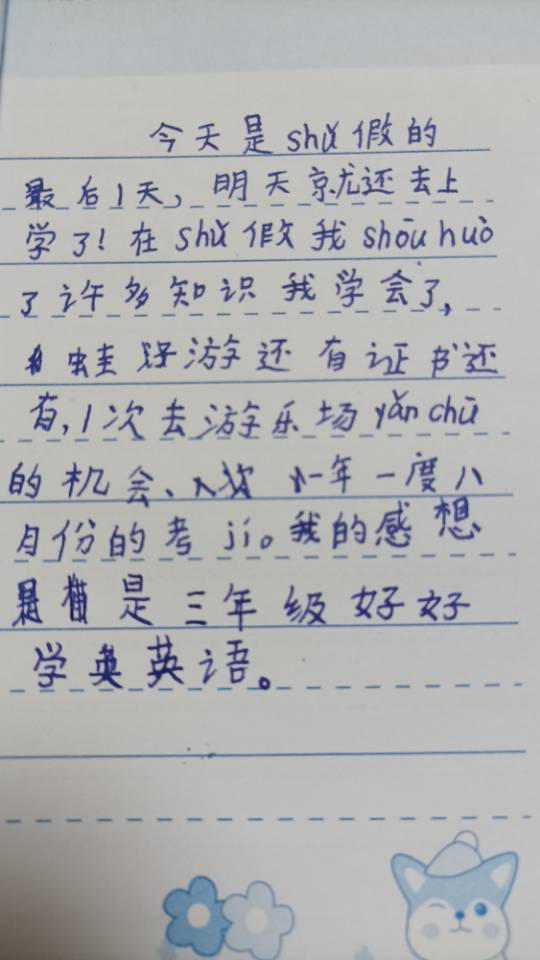 今天是shǔ假的
最后1天，明天就还去上
学了！在shǔ假我shōu huò
了许多知识我学会了，
蛙泳游还有证书还
有，1次去游乐场yǎn chū
的机会、一年一度八
月份的考jí。我的感想
是三年级好好
学英语。